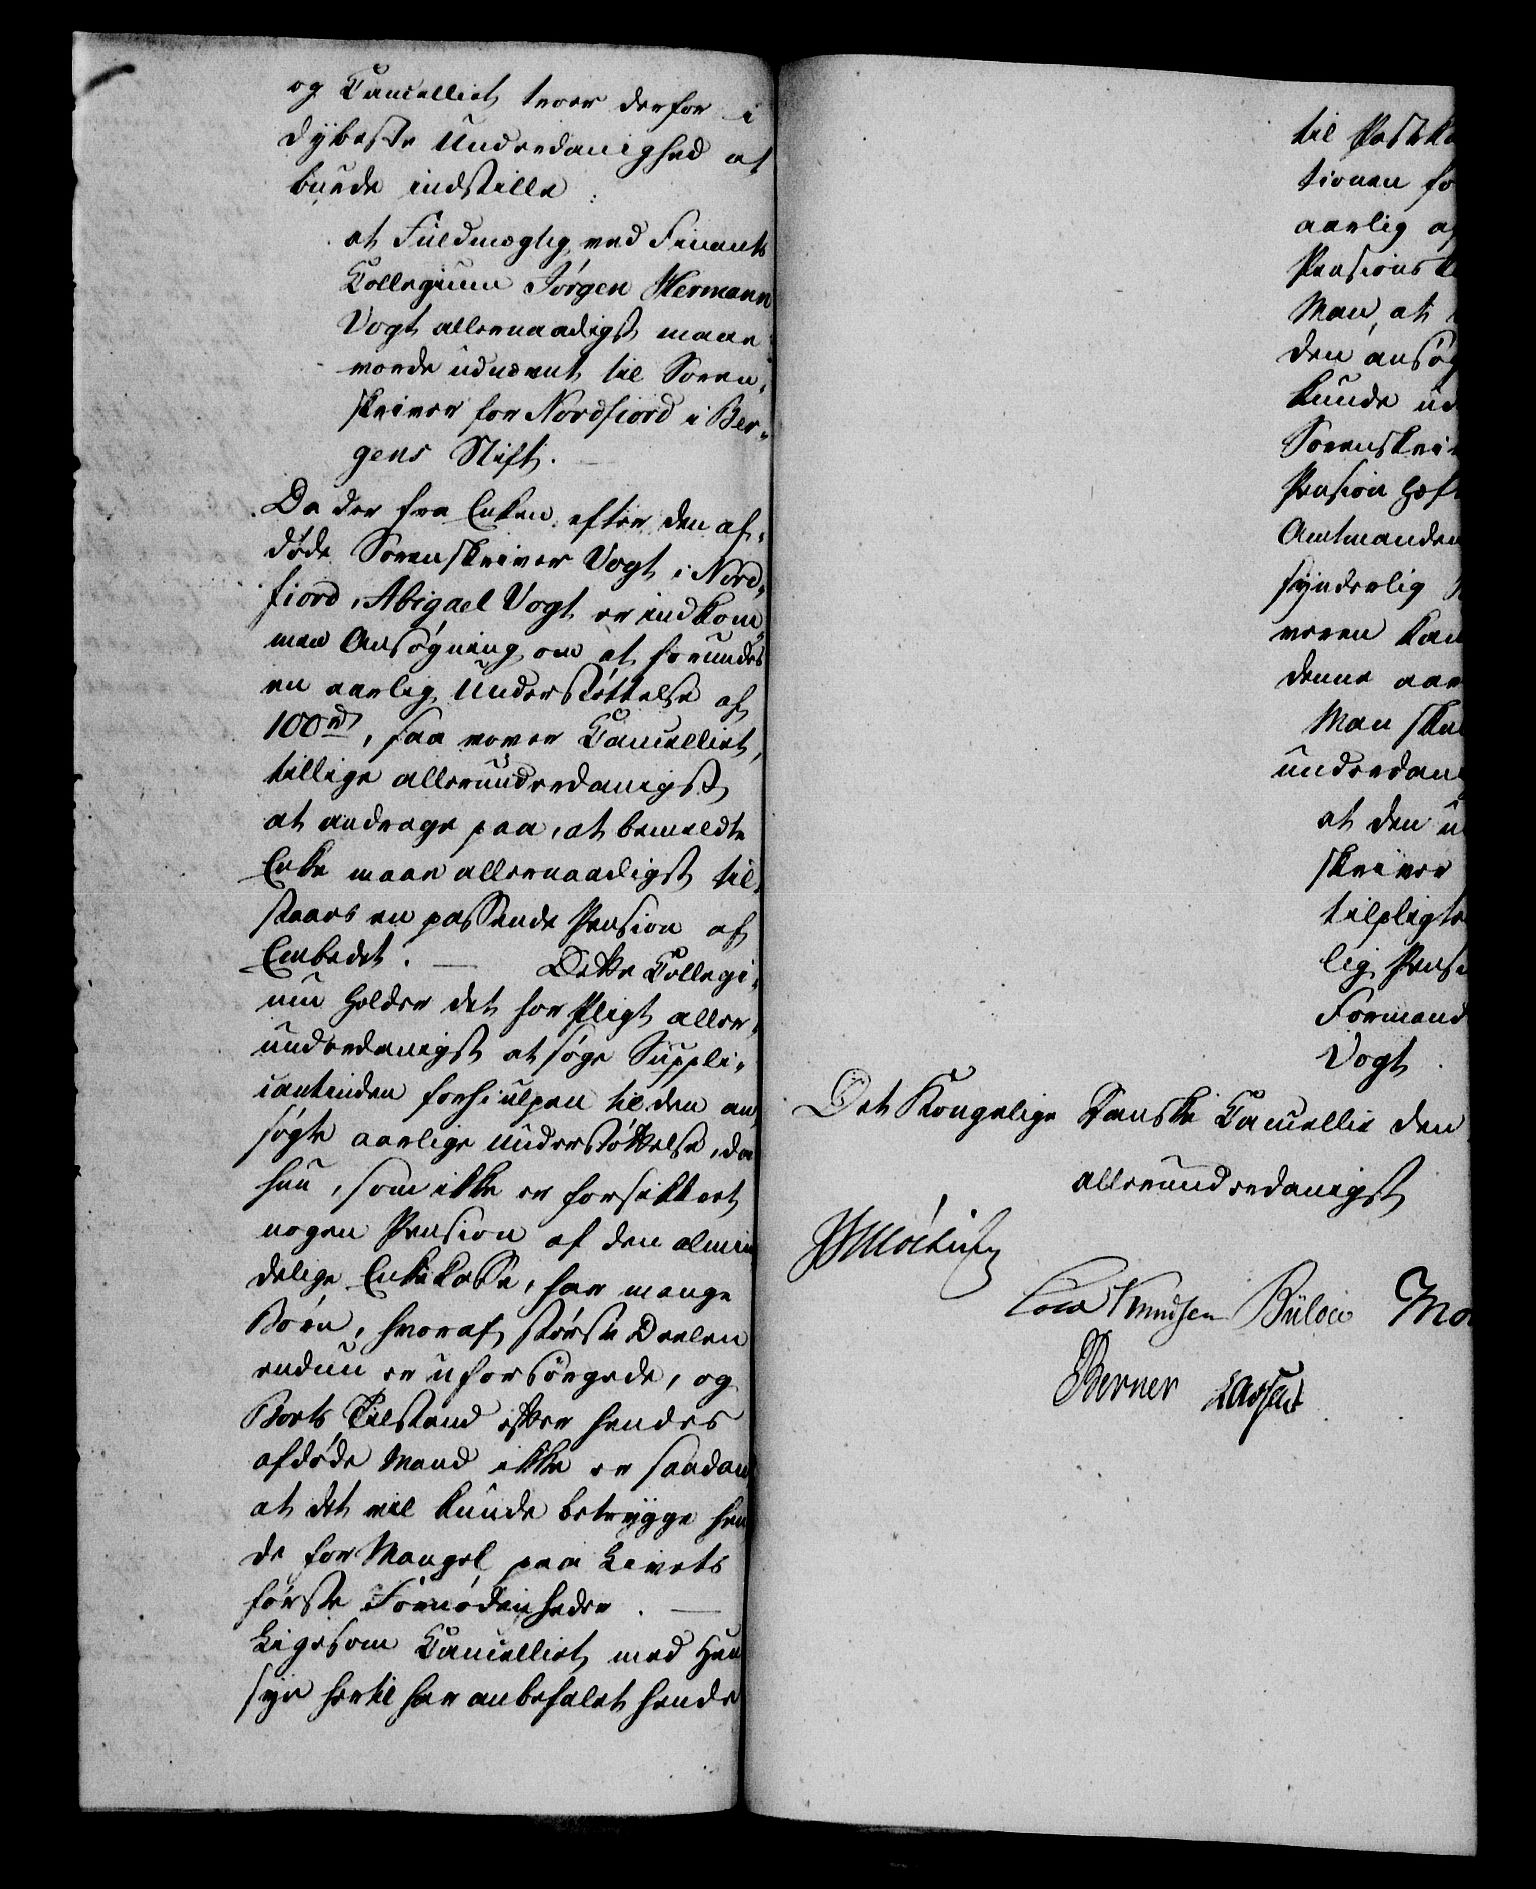 og Cancelliet troer derfor i
dybeste Underdanighed at
burde indstille:
at Fuldmægtig ved Finants
Collegium Jørgen Hermann
Vogt allernaadigst maae
vorde udnævnt til Soren-
skriver for Nordfiord i Ber-
gens Stift.
Da der fra Enken efter den af-
døde Sorenskriver Vogt i Nord-
fiord, Abigael Vogt er indkom-
men Ansøgning om at forundes
en aarlig Understøttelse af
100 rd, saa vover Cancelliet,
tillige allerunderdanigst
at andrage paa, at bemeldte
Enke maae allernaadigst til-
staaes en passende Pension af
Embedet. — Dette Collegi-
um holder det for Pligt aller-
underdanigst at søge Suppli-
cantinden forhiulpen til den an-
søgte aarlige Understøttelse, da
hun, som ikke er forsikkret
nogen Pension af den almin
delige Enkekasse, har mange
Børn, hvoraf største Deelen
endnu er uforsørgede, og
Boets Tilstand efter hendes
afdøde Mand ikke er saadan
at det vil kunde betrygge hen
de for Mangel paa Livets
første Fornødenheder. —
Ligesom Cancelliet med Hen
syn hertil har anbefalet hende
til Postka
tionen fo
aarlig af
Pensions
Man, at
den ansøg
kunde ud
Sorenskri
Pension hæf
Amtmanden
synderlig
veren kan
denne aar
Man skul
underdan
at den u
skriver
tilpligte
lig Pensi
Formand
Vogt.
Det Kongelige Danske Cancellie den
allerunderdanigst
Cold Knudsen Bülow Mo
Berner Lassen